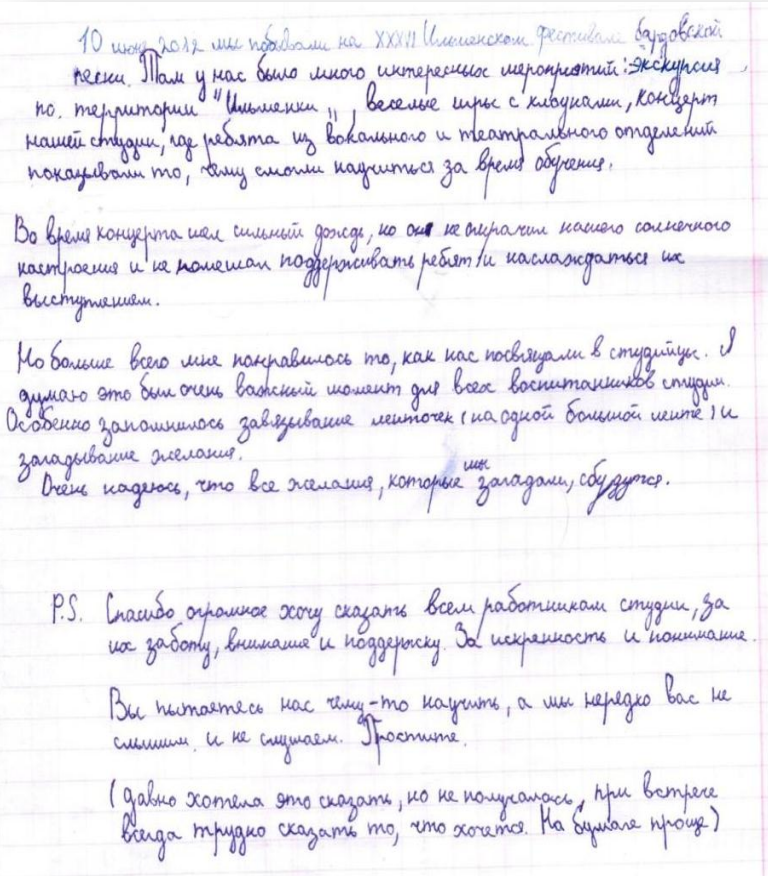 10 июня 2012 мы побывали на XXXII Ильменском фестивале бардовской
песни. Там у нас было много интересных мероприятий: экскурсия
по. территории "Ильменки", веселые игры с клоунами, концерт
нашей студии, где ребята из вокального и театрального отделений
показывали то, чему смогли научиться за время обучения.
Во время концерта шел сильный дождь, но он не омрачил нашего солнечного
настроения и не помешал поддерживать ребят и наслаждаться их
выступлением.
Но больше всего мне понравилось то, как нас посвящали в студийцы. Я
думаю это был очень важный момент для всех воспитанников студии.
Особенно запомнилось завязывание ленточек (на одной большой ленте) и
загадывание желания.
Очень надеюсь, что все желания, которые мы загадали, сбудутся.
P.S. Спасибо огромное хочу сказать всем работникам студии, за
их заботу, внимание и поддержку. За искренность и понимание.
Вы пытаетесь нас чему-то научить, а мы нередко вас не
слышим и не слушаем. Простите.
(давно хотела это сказать, но не получалось, при встрече
всегда трудно сказать то, что хочется. На бумаге проще)